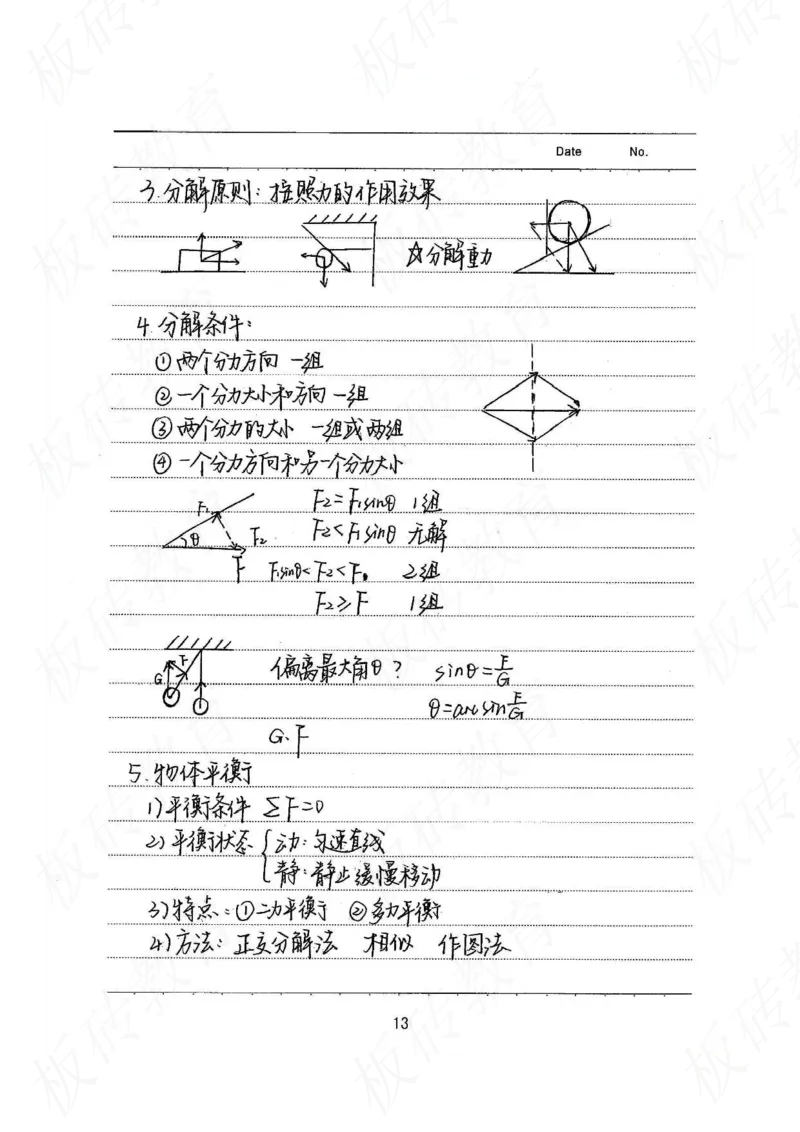 Date No.
3.分解原则：按照力的作用效果
☆分解重力
4.分解条件：
①两个分力方向 一组
②一个分力大小和方向 一组
③两个分力的大小 一组或两组
④一个分力方向和另一个分力大小
F₁ θ F₂ F
F₂=F₁sinθ 1组
F₂<F₁sinθ 无解
F₁sinθ<F₂<F。 2组
F₂≥F 1组
G F
偏离最大角θ？ sinθ=F/G
θ=arcsin F/G
G、F
5.物体平衡
1)平衡条件 ΣF=0
2)平衡状态 { 动：匀速直线
静：静止缓慢移动
3)特点：①二力平衡 ②多力平衡
4)方法：正交分解法 相似 作图法
13
板砖教育